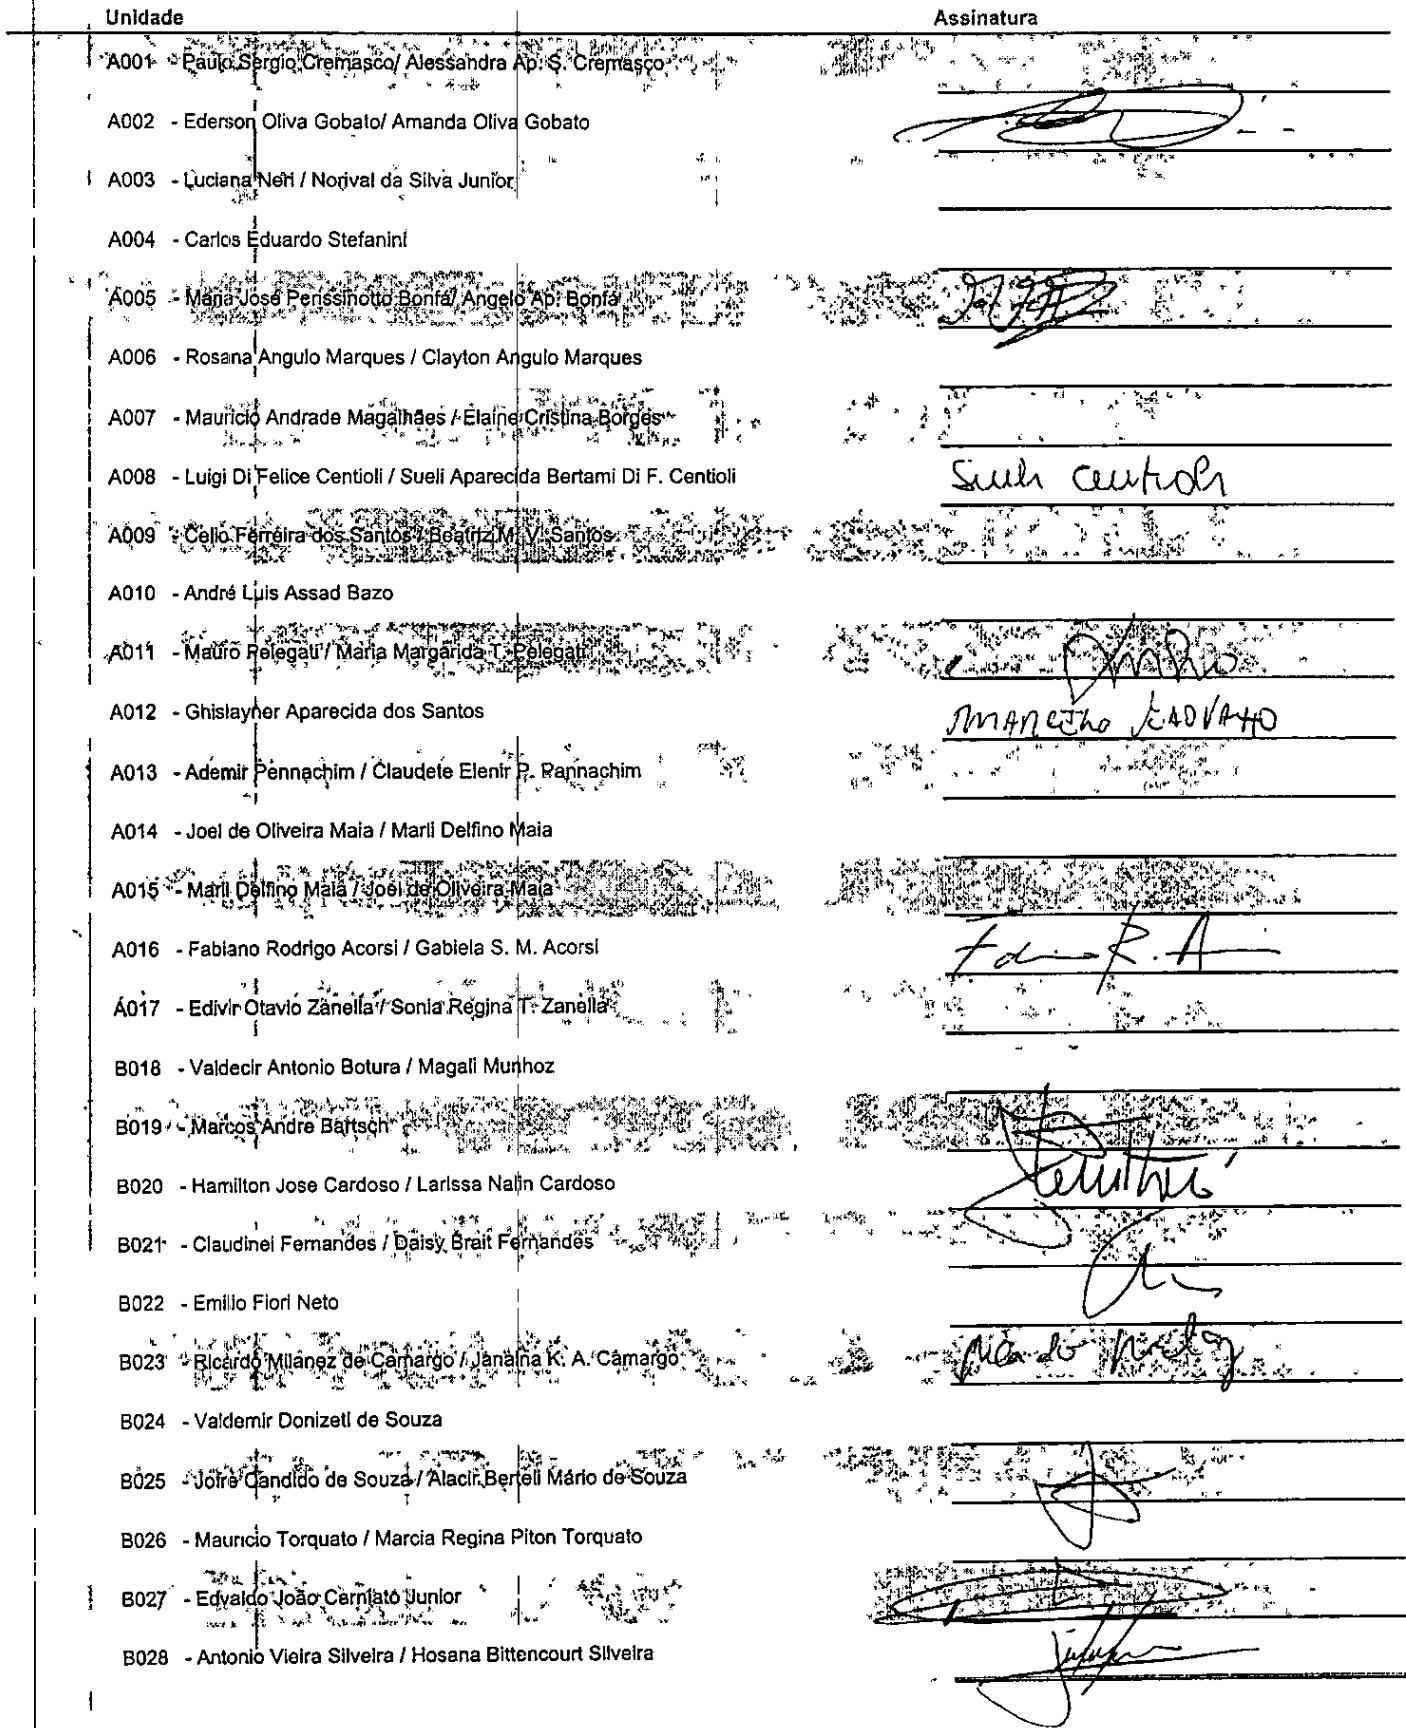 Unidade Assinatura
A001 - Paulo Sergio Cremasco/ Alessandra Ap. S. Cremasco
A002 - Ederson Oliva Gobato/ Amanda Oliva Gobato
A003 - Luciana Neri / Norival da Silva Junior
A004 - Carlos Eduardo Stefanini
A005 - Maria José Perissinotto Bonfá/ Angelo Ap. Bonfá
A006 - Rosana Angulo Marques / Clayton Angulo Marques
A007 - Mauricio Andrade Magalhães / Elaine Cristina Borges
A008 - Luigi Di Felice Centioli / Sueli Aparecida Bertami Di F. Centioli Sueli Centioli
A009 - Celio Ferreira dos Santos / Beatriz M. V. Santos
A010 - André Luis Assad Bazo
A011 - Mauro Pelegati / Maria Margarida T. Pelegati
A012 - Ghislayner Aparecida dos Santos
A013 - Ademir Pennachim / Claudete Elenir P. Pannachim
A014 - Joel de Oliveira Maia / Marli Delfino Maia
A015 - Marli Delfino Maia / Joel de Oliveira Maia
A016 - Fabiano Rodrigo Acorsi / Gabiela S. M. Acorsi
A017 - Edivir Otavio Zanella / Sonia Regina T. Zanella
B018 - Valdecir Antonio Botura / Magali Munhoz
B019 - Marcos Andre Bartsch
B020 - Hamilton Jose Cardoso / Larissa Nalin Cardoso
B021 - Claudinei Fernandes / Daisy Brait Fernandes
B022 - Emilio Fiori Neto
B023 - Ricardo Milanez de Camargo / Janaina K. A. Camargo
B024 - Valdemir Donizeti de Souza
B025 - Jofre Candido de Souza / Alacir Berteli Mário de Souza
B026 - Mauricio Torquato / Marcia Regina Piton Torquato
B027 - Edvaldo João Cerniato Junior
B028 - Antonio Vieira Silveira / Hosana Bittencourt Silveira